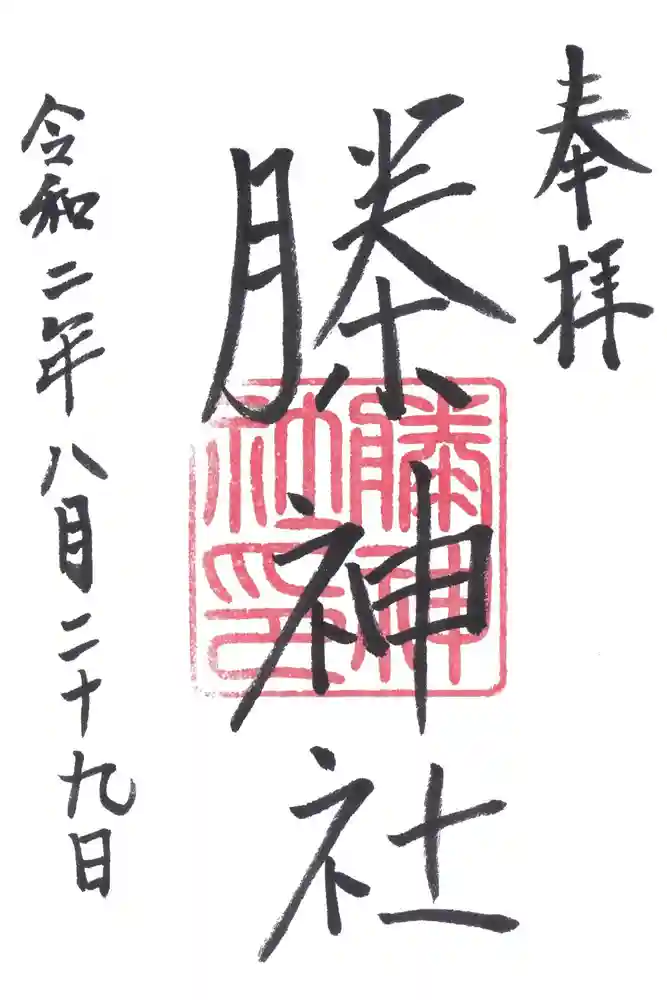 奉拝
榺神社
令和二年八月二十九日
榺神
社印